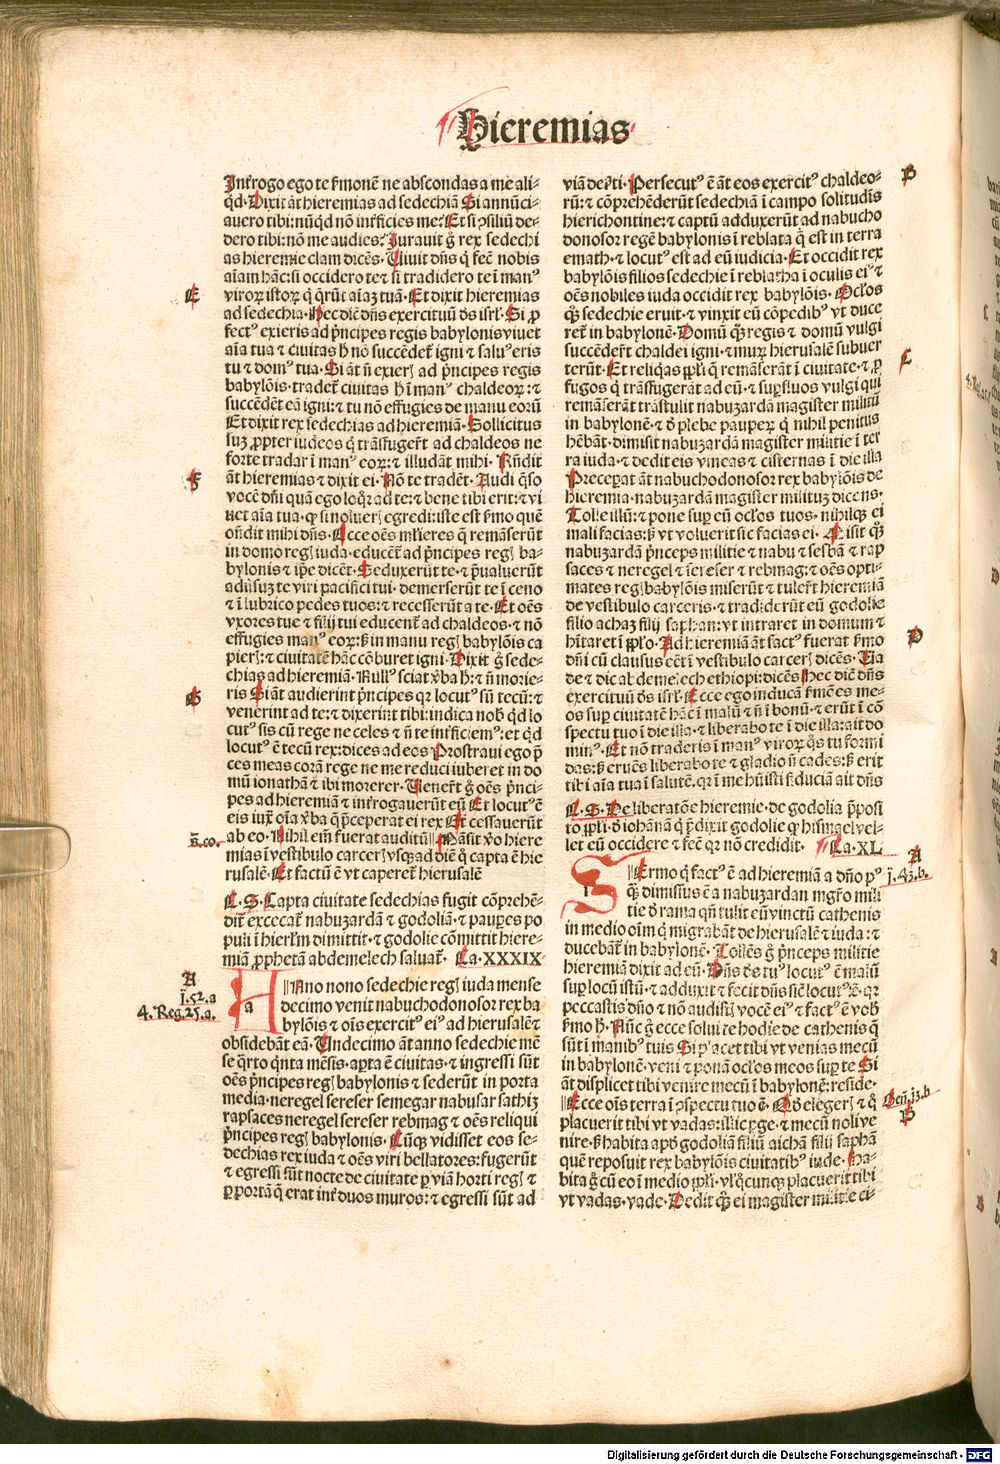 Hieremias
Int̄rogo ego te ẜmonē ne abscondas a me ali-
q̇d. Dixit āt hieremias ad sedechiā Si annūci-
auero tibi: nūq̇d nō int̄ficies me? Et si ↄsiliū de-
dero tibi: nō me audies? Jurauit g̊ rex sedechi
as hieremie clam dicēs. Uiuit dn̄s q̇ fec̄ nobis
aīam hāc: si occidero te ⁊ si tradidero te ī manꝰ
E
viroꝝ istoꝝ q̇ q̄rūt aīaꝫ tuā. Et dixit hieremias
ad sedechiā. Hec dic̄ dn̄s exercituū ds̄ isrl̄. Si ꝓ
fectꝰ exieris ad pn̄cipes regis babylonis viuet
aīa tua ⁊ ciuitas h̄ nō succēdet̄ igni ⁊ saluꝰ eris
tu ⁊ domꝰ tua. Si āt nō exierꝭ ad pn̄cipes regis
babylōis. tradet̄ ciuitas h̄ ī manꝰ chaldeoꝝ: ⁊
succēdēt eā igni: ⁊ tu nō effugies de manu eorū
Et dixit rex sedechias ad hieremiā. Sollicitus
suꝫ ꝓpter iudeos q̇ trāsfugert̄ ad chaldeos ne
forte tradar ī manꝰ eoꝝ: ⁊ illudāt mihi. Rn̄dit
F
āt hieremias ⁊ dixit ei. Nō te tradēt. Audi q̄so
vocē dn̄i quā ego loq̇r ad te: ⁊ bene tibi erit: ⁊ vi
uet aīa tua. ꝙ si noluerꝭ egredi: iste est ẜmo quē
on̄dit mihi dn̄s. Ecce oēs ml̄ieres q̄ remāserūt
in domo regꝭ iuda. educēt̄ ad pn̄cipes regꝭ ba-
bylonis ⁊ ip̄e dicēt. Seduxerūt te. ⁊ p̄ualuerūt
aduꝭsuꝫ te viri pacifici tui. demerserūt te ī ceno
⁊ ī lubrico pedes tuos: ⁊ recesserūt a te. Et oēs
vxores tue ⁊ filij tui educent̄ ad chaldeos. ⁊ nō
effugies manꝰ eoꝝ: ẜ in manu regꝭ babylōis ca
pierꝭ: ⁊ ciuitatē hāc cōburet igni. Dixit g̊ sede-
chias ad hieremiā. Nullꝰ sciat v̄ba h̄: ⁊ nō morie-
G
ris Si āt audierint pn̄cipes qꝛ locutꝰ sū tecū: ⁊
venerint ad te: ⁊ dixerint tibi: indica nob̄ q̇d lo
cutꝰ sis cū rege ne celes ⁊ nō te int̄ficiemꝰ: et q̇d
locutꝰ ē tecū rex: dices ad eos Prostraui ego p̄
ces meas corā rege ne me reduci iuberet in do
mū ionathā ⁊ ibi morerer. Uenert̄ g̊ oēs pn̄ci-
pes ad hieremiā ⁊ int̄rogauerūt eū Et locutꝰ ē
eis iuxͣ oīa v̄ba q̄ p̄ceperat ei rex Et cessauerūt
ab eo. Nihil em̄ fuerat auditū Māsit v̊o hiere
mias ī vestibulo carcerꝭ vsqꝫ ad diē q̇ capta ē hie
rusalē. Et factū ē vt caperet̄ hierusalē
C. S. Capta ciuitate sedechias fugit cōprehē-
dit̄ excecat̄ nabuzardā ⁊ godoliā. ⁊ paupes po
puli ī hierl̄m dimittit. ⁊ godolie cōmittit hiere-
miā ꝓphetā abdemelech saluat̄. Ca. XXXIX.
A
j. 52. a
4. Reg. 25. a.
ANno nono sedechie regꝭ iuda mense
decimo venit nabuchodonosor rex ba
bylōis ⁊ oīs exercitꝰ eiꝰ ad hierusalē ⁊
obsidebāt eā. Undecimo āt anno sedechie mē
se q̇rto q̇nta mēsis. apta ē ciuitas. ⁊ ingressi sūt
oēs pn̄cipes regꝭ babylonis ⁊ sederūt in porta
media. neregel sereser semegar nabusar sathiꝫ
rapsaces neregel sereser rebmag ⁊ oēs reliqui
pn̄cipes regꝭ babylonis. Cūqꝫ vidisset eos se-
dechias rex iuda ⁊ oēs viri bellatores: fugerūt
⁊ egressi sūt nocte de ciuitate ꝑ viā horti regꝭ ⁊
ꝑ portā q̄ erat int̄ duos muros: ⁊ egressi sūt ad
B
viā deꝭti. Persecutꝰ ē āt eos exercitꝰ chaldeo-
rū: ⁊ cōprehēderūt sedechiā ī campo solitudīs
hierichontine: ⁊ captū adduxerūt ad nabucho
donosor regē babylonis ī reblata q̄ est in terra
emath. ⁊ locutꝰ est ad eū iudicia. Et occidit rex
babylōis filios sedechie ī reblatha ī oculis eiꝰ ⁊
oēs nobiles iuda occidit rex babylōis. Oc̄los
q̊ꝫ sedechie eruit. ⁊ vinxit eū cōpedibꝰ vt duce
ret̄ in babylonē. Domū q̊ꝫ regis ⁊ domū vulgi
C
succēdert̄ chaldei igni. ⁊ muꝝ hierusalē subuer
terūt. Et reliq̇as ppl̄i q̄ remāserāt ī ciuitate. ⁊ ꝑ
fugos q̇ trāsfugerāt ad eū. ⁊ suꝑfluos vulgi qui
remāserāt trāstulit nabuzardā magister militū
in babylonē. ⁊ d̄ plebe pauperꝝ q̇ nihil penitus
hēbāt. dimisit nabuzardā magister militie ī ter
ra iuda. ⁊ dedit eis vineas ⁊ cisternas ī die illa
Preceꝑat āt nabuchodonosor rex babylōis de
hieremia. nabuzardā magister militūꝫ dicens.
Tolle illū: ⁊ pone suꝑ eū oc̄los tuos. nihilqꝫ ei
mali facias: ẜ vt voluerit sic facias ei. Misit q̊ꝫ
nabuzardā pn̄ceps militie ⁊ nabu ⁊ sesbā ⁊ rap
saces ⁊ neregel ⁊ sereser ⁊ rebmag: ⁊ oēs opti-
mates regꝭ babylōis miserūt ⁊ tulert̄ hieremiā
de vestibulo carceris. ⁊ tradiderūt eū godolie
filio achaꝫ filij saphan: vt intraret in domum ⁊
D
hītaret ī ppl̄o. Ad hieremiā āt factꝰ fuerat ẜmo
dn̄i cū clausus eēt ī vestibulo carcerꝭ dicēs. Ua
de ⁊ dic abdemelech ethiopi: dicēs Hec dic̄ dn̄s
exercituū ds̄ isrl̄. Ecce ego inducā ẜmōes me-
os suꝑ ciuitatē hāc ī malū ⁊ nō ī bonū. ⁊ erūt ī cō
spectu tuo ī die illa. ⁊ liberabo te ī die illa: ait do
minꝰ. Et nō traderis ī manꝰ viroꝝ q̊s tu formi
das: ẜ eruēs liberabo te ⁊ gladio nō cades: ẜ erit
tibi aīa tua ī salutē. qꝛ ī me hūisti fiduciā ait dn̄s
C. S. De liberatōe hieremie. de godolia p̄posi
to ppl̄i. d̄ iohānā q̇ p̄dixit godolie ꝙ hismael vel-
let eū occidere ⁊ fec̄ qꝛ nō credidit. Ca. XL
A
j. 43. b.
SErmo q̇ factꝰ ē ad hieremiā a dn̄o pꝰ
q̊ꝫ dimissus ē a nabuzardan mgr̄o mili
tie d̄ rama qn̄ tulit eū vinctū cathenis
in medio oīm q̇ migrabāt de hierusalē ⁊ iuda: ⁊
ducebāt̄ in babylonē. Tollēs g̊ pn̄ceps militie
hieremiā dixit ad eū. Dn̄s ds̄ tuꝰ locutꝰ ē malū
suꝑ locū istū. ⁊ adduxit ⁊ fecit dn̄s sic̄ locutꝰ ē. qꝛ
peccastis dn̄o ⁊ nō audistꝭ vocē eiꝰ ⁊ factꝰ ē vob̄
ẜmo h̄. Nūc g̊ ecce solui te hodie de cathenis q̄
sūt ī manibꝰ tuis Si placet tibi vt venias mecū
in babylonē. veni ⁊ ponā oc̄los meos suꝑ te Si
āt displicet tibi venire mecū ī babylonē: reside.
Gen̄. 13. b
B
Ecce oīs terra ī ↄspectu tuo ē. Qd̄ elegerꝭ ⁊ q̊
placuerit tibi vt vadas: illic perge. ⁊ mecū noli ve
nire. ẜ habita apd̄ godoliā filiū aichā filij saphā
quē reposuit rex babylōis ciuitatibꝰ iude. Ha-
bita g̊ cū eo ī medio ppl̄i. vl̓ q̊cunqꝫ placuerit tibi
vt vadas. vade. Dedit q̊ꝫ ei magister militie ci-
Digitalisierung gefördert durch die Deutsche Forschungsgemeinschaft - DFG